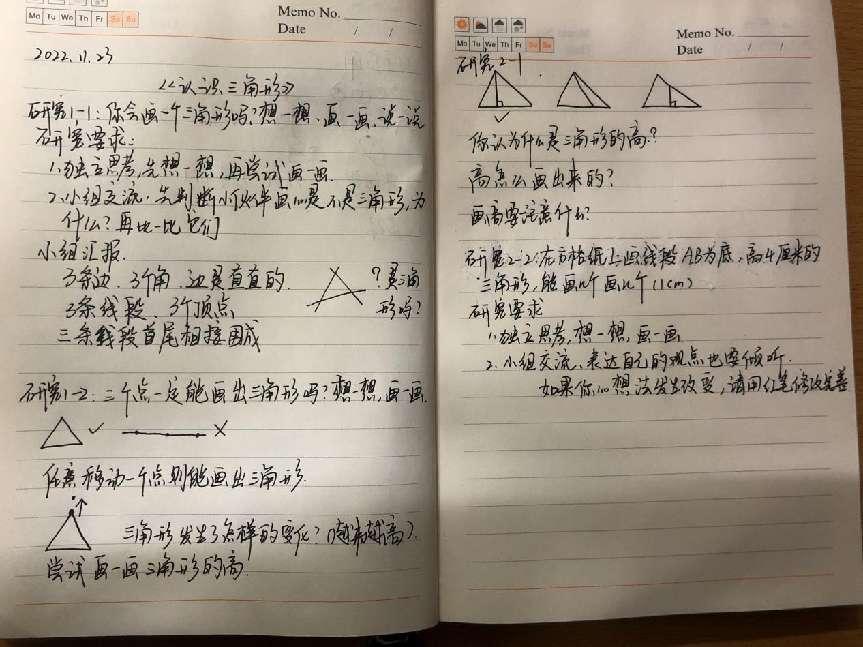 Memo No.
Mo Tu We Th Fr Sa Su
Date / /
2022.11.23
《认识三角形》
研究1-1：你会画一个三角形吗？想一想、画一画、说一说
研究要求：
1.独立思考，先想一想，再尝试画一画.
2.小组交流，先判断小伙伴画的是不是三角形，为
什么？再比一比它们
小组汇报.
3条边、3个角、边是直直的. ？是三角
3条线段、3个顶点 形吗？
三条线段首尾相接围成
研究1-2：三个点一定能画出三角形吗？想一想，画一画.
任意移动一个点则能画出三角形.
三角形发生了怎样的变化？（越来越高）.
尝试画一画三角形的高.
Memo No.
Mo Tu We Th Fr Sa Su
Date / /
研究2-1
你认为什么是三角形的高？
高怎么画出来的？
画高要注意什么？
研究2-2：在方格纸上画线段AB为底，高4厘米的
三角形，能画几个画几个（1cm）
研究要求
1.独立思考，想一想，画一画
2.小组交流，表达自己的观点也要倾听.
如果你的想法发生改变，请用红笔修改完善